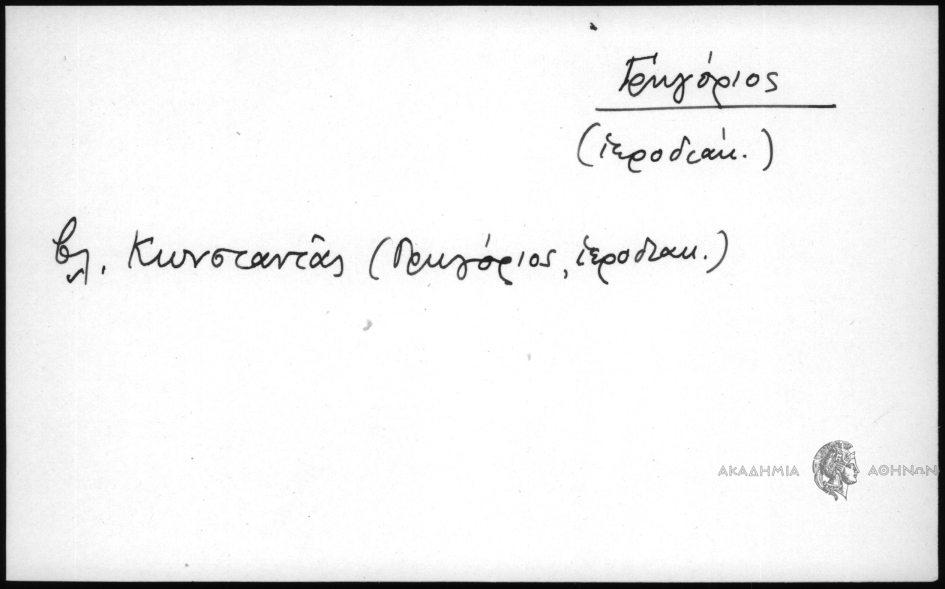 Γρηγόριος
(ἱεροδιάκ.)
βλ. Κωνσταντᾶς (Γρηγόριος, ἱεροδιακ.)
ΑΚΑΔΗΜΙΑ ΑΘΗΝΩΝ